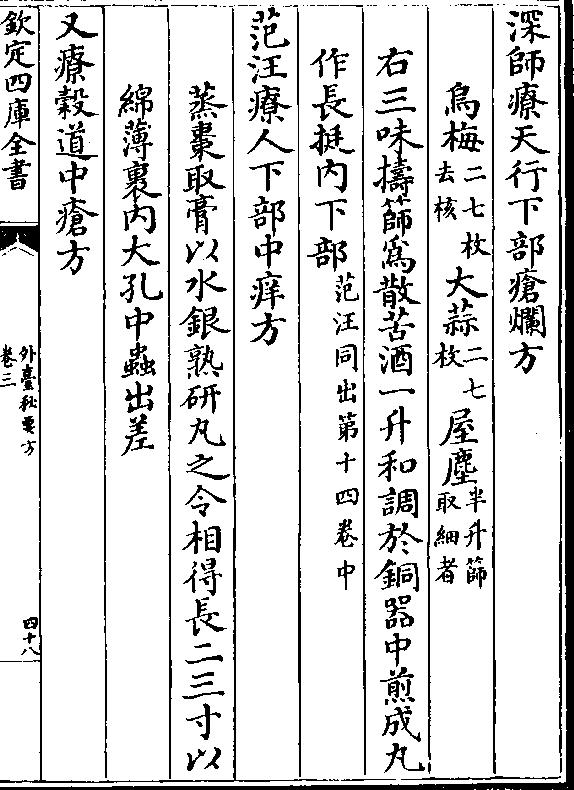 深師療天行下部瘡爛方
烏梅二七枚去核 大蒜二七枚 屋塵半升篩取細者
右三味擣篩爲散苦酒一升和調於銅器中煎成丸
作長挺内下部范汪同出第十四卷中
范汪療人下部中痒方
蒸棗取膏以水銀熟研丸之令相得長二三寸以
綿薄裹内大孔中蟲出差
又療穀道中瘡方
欽定四庫全書
外臺秘要方
卷三
四十八